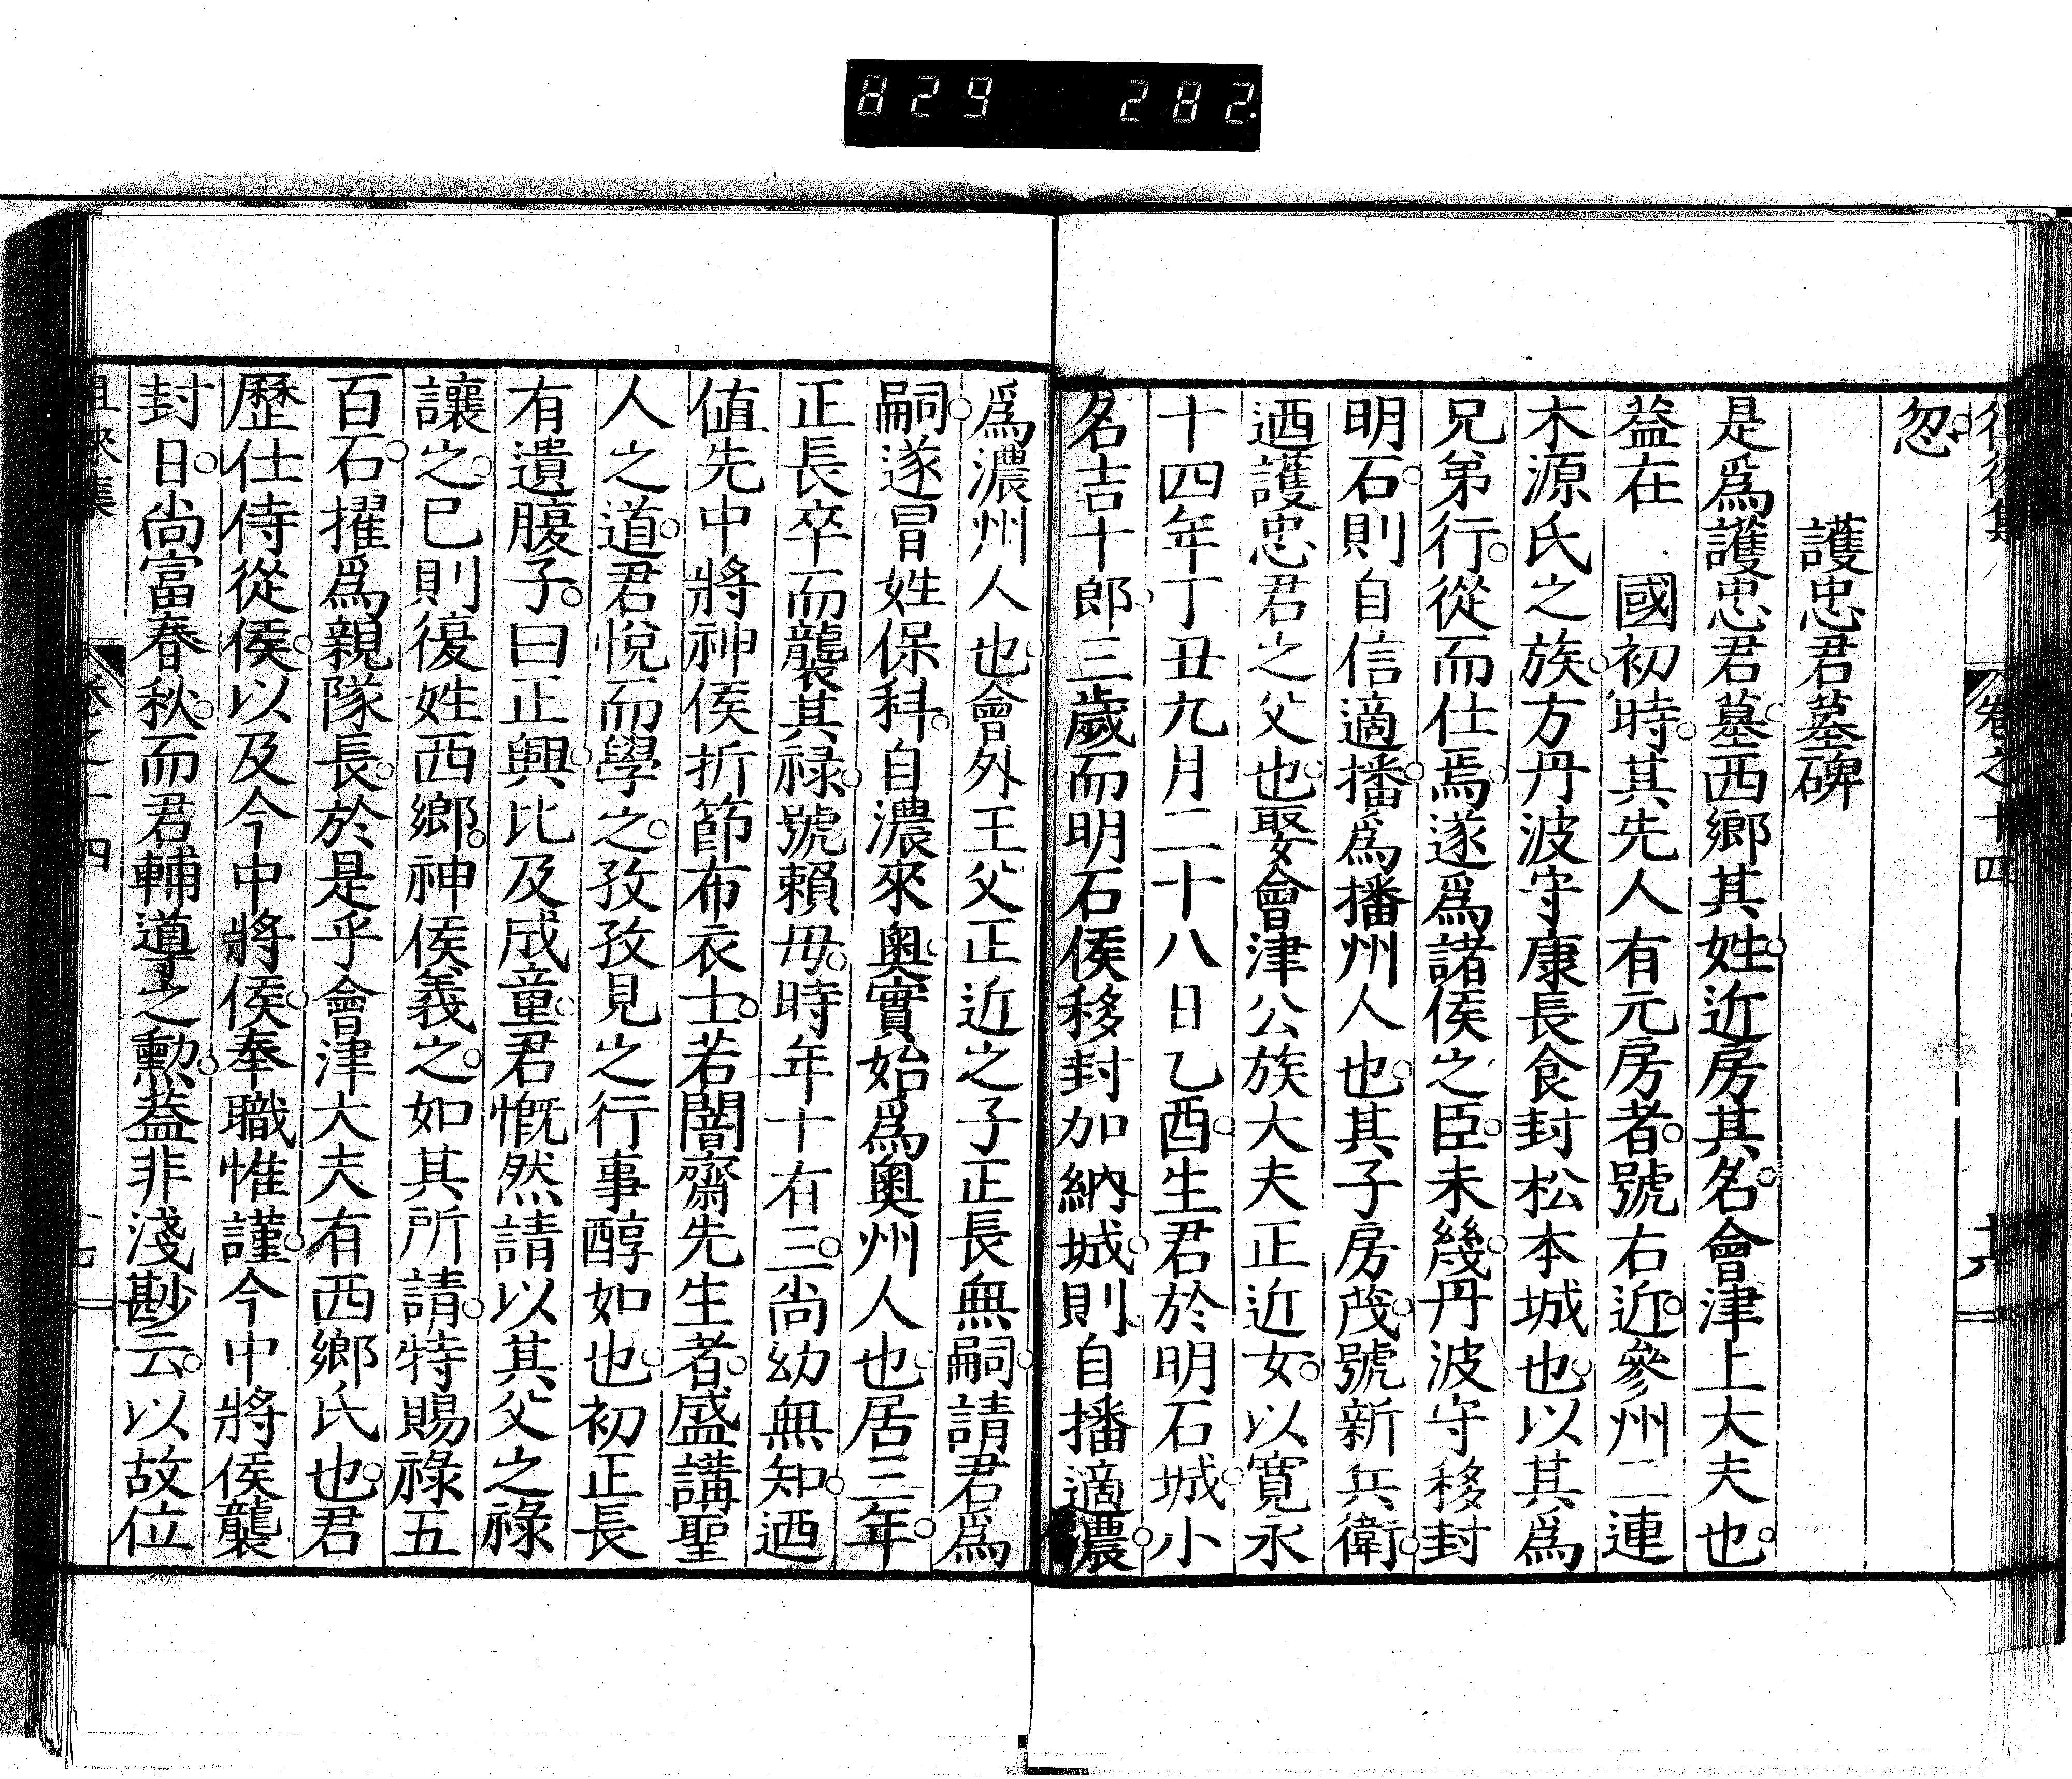 829 282
忽
護忠君墓碑
是爲護忠君墓西鄉其姓近房其名會津上大夫也
葢在 國初時其先人有元房者號右近參州二連
木源氏之族方丹波守康長食封松本城也以其爲
兄弟行從而仕焉遂爲諸侯之臣未幾丹波守移封
明石則自信適播爲播州人也其子房茂號新兵衛
迺護忠君之父也娶會津公族大夫正近女以寬永
十四年丁丑九月二十八日乙酉生君於明石城小
名吉十郎三歲而明石侯移封加納城則自播適濃
爲濃州人也會外王父正近之子正長無嗣請君爲
嗣遂冒姓保科自濃來奥實始爲奥州人也居三年
正長卒而襲其祿號賴母時年十有三尚幼無知迺
値先中將神侯折節布衣士若闇齋先生者盛講聖
人之道君悅而學之孜孜見之行事醇如也初正長
有遺腹子曰正興比及成童君慨然請以其父之祿
讓之已則復姓西鄉神侯義之如其所請特賜祿五
百石擢爲親隊長於是乎會津大夫有西鄉氏也君
歷仕侍從侯以及今中將侯奉職惟謹今中將侯襲
封日尚富春秋而君輔導之勲葢非淺尠云以故位